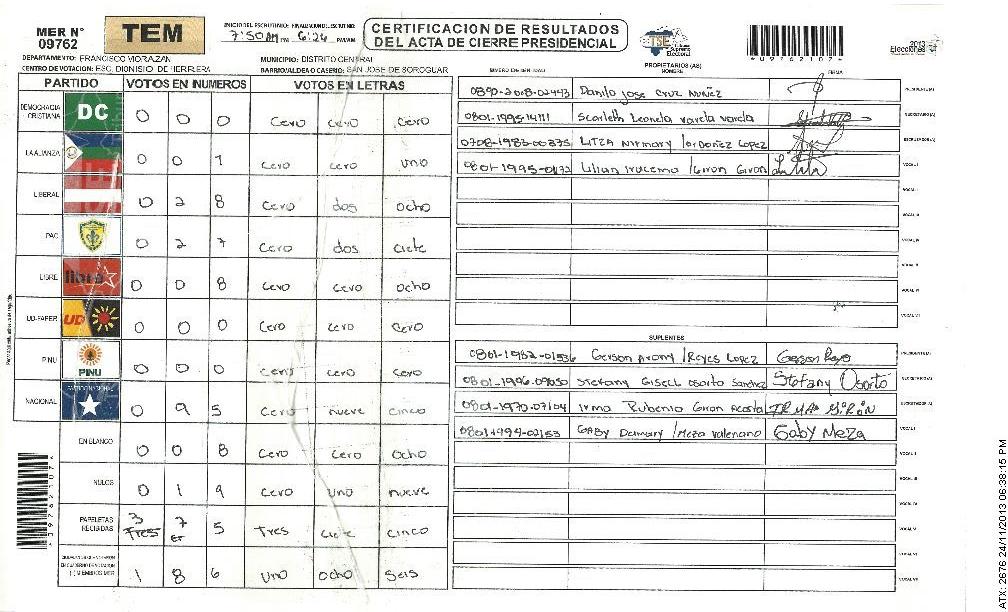 MER N° 09762
TEM
INICIO DEL ESCRUTINIO: FINALIZACION DEL ESCRUTINIO:
7:50 AM PM 6:24 PM/AM
CERTIFICACION DE RESULTADOS
DEL ACTA DE CIERRE PRESIDENCIAL
TSE Tribunal Supremo Electoral
*09762107*
2013 Elecciones
DEPARTAMENTO: FRANCISCO MORAZAN MUNICIPIO: DISTRITO CENTRAL
CENTRO DE VOTACION: ESC. DIONISIO DE HERRERA BARRIO/ALDEA O CASERIO: SAN JOSE DE SOROGUAR
PROPIETARIOS (AS)
NUMERO DE IDENTIDAD NOMBRE FIRMA
PARTIDO VOTOS EN NUMEROS VOTOS EN LETRAS
DEMOCRACIA CRISTIANA DC 0 0 0 cero cero cero
LA ALIANZA 0 0 1 cero cero uno
LIBERAL 0 2 8 cero dos ocho
PAC 0 2 7 cero dos ciete
LIBRE libre 0 0 8 cero cero ocho
UD-FAPER UD 0 0 0 cero cero cero
PINU PINU 0 0 0 cero cero cero
NACIONAL PARTIDO NACIONAL 0 9 5 cero nueve cinco
EN BLANCO 0 0 8 cero cero ocho
NULOS 0 1 9 cero uno nueve
PAPELETAS RECIBIDAS 3 Tres 7 5 Tres ciete cinco
1 8 6 uno ocho seis
Danilo jose cruz nuñez PRESIDENTE(A)
0801-1995-14111 Scarleth Leonela varela varela SECRETARIO(A)
0708-1983-00375 LITZA Nirmary ordoñez Lopez ESCRUTADOR(A)
0801-1995-01172 Lilian Iracema Giron Giron VOCAL I
VOCAL II
VOCAL III
VOCAL IV
VOCAL V
VOCAL VI
VOCAL VII
SUPLENTES
0801-1982-01536 Gerson Arony Reyes Lopez Gerson Reyes PRESIDENTE(A)
0801-1996-09050 Stefany Gisell Osorto Sanchez Stefany Osorto SECRETARIO(A)
0801-1970-07104 Irma Rubenia Giron Acosta IRMA GIRÓN ESCRUTADOR(A)
GABY Damary Meza Valeriano Gaby Meza VOCAL I
VOCAL II
VOCAL III
VOCAL IV
VOCAL V
VOCAL VI
VOCAL VII
*09762107*
ATX: 2676 24/11/2013 06:38:15 PM